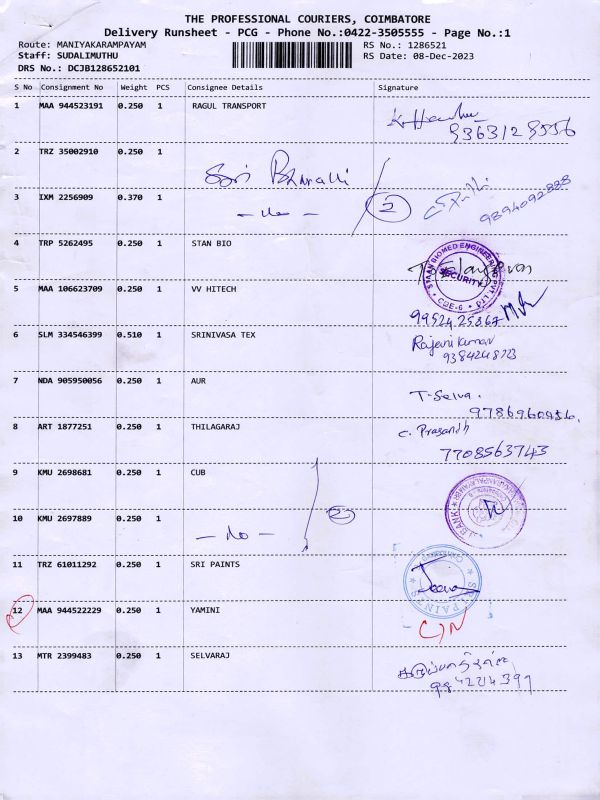 THE PROFESSIONAL COURIERS, COIMBATORE
Delivery Runsheet - PCG - Phone No.:0422-3505555 - Page No.:1
Route: MANIYAKARAMPAYAM RS No.: 1286521
Staff: SUDALIMUTHU RS Date: 08-Dec-2023
DRS No.: DCJB128652101
S No Consignment No Weight PCS Consignee Details Signature
1 MAA 944523191 0.250 1 RAGUL TRANSPORT
2 TRZ 35002910 0.250 1
Sri Bharathi
3 IXM 2256909 0.370 1 2 9894092888
4 TRP 5262495 0.250 1 STAN BIO
STAAN BIOMED ENGINEERING PVT. LTD
SECURITY
CBE-6
5 MAA 106623709 0.250 1 VV HITECH
6 SLM 334546399 0.510 1 SRINIVASA TEX Rajani Kumar
7 NDA 905950056 0.250 1 AUR T-Selva.
9786960456.
8 ART 1877251 0.250 1 THILAGARAJ C. Prasandh
7708563743
9 KMU 2698681 0.250 1 CUB
BANK
10 KMU 2697889 0.250 1 - do - 2
11 TRZ 61011292 0.250 1 SRI PAINTS
SRI PAINTS
12 MAA 944522229 0.250 1 YAMINI
13 MTR 2399483 0.250 1 SELVARAJ